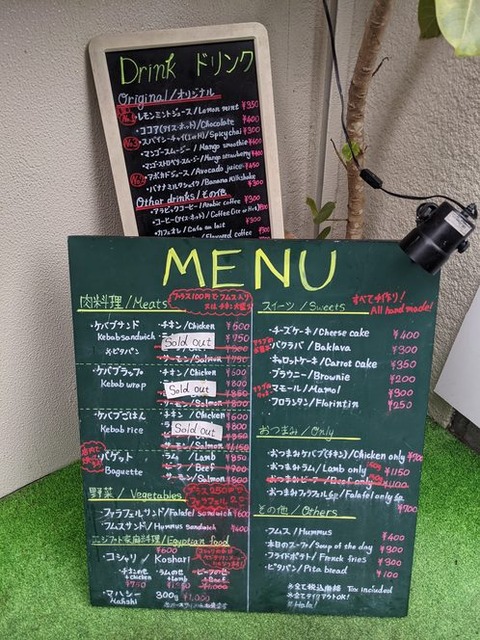 Drink ドリンク
Original/オリジナル
レモンミントジュース/Lemon mint ¥350
・ココア(アイス・ホット)/Chocolate ¥400
・スパイシーチャイ(ホット)/Spicy chai ¥300
・マンゴースムージー/Mango smoothie ¥400
・マンゴーストロベリースムージー/Mango strawberry ¥400
・アボカドジュース/Avocado juice ¥450
・バナナミルクシェイク/Banana milkshake ¥300
Other drinks/その他
・アラビックコーヒー/Arabic coffee ¥300
・コーヒー(アイス・ホット)/Coffee
・カフェオレ/Cafe au lait
Flavored coffee
MENU
肉料理/Meats
プラス100円でフムス入り
・ケバブサンド チキン/Chicken ¥500
Kebab sandwich Sold out ¥750
※ピタパン
サーモン/Salmon ¥750
・ケバブラップ チキン/Chicken ¥500
Kebab wrap Sold out
サーモン/Salmon
・ケバブごはん チキン/Chicken ¥600
Kebab rice Sold out ¥800
・バゲット ラム/Lamb ¥850
Baguette ビーフ/Beef ¥900
サーモン/Salmon ¥800
野菜/Vegetables
プラス250円で
・ファラフェルサンド/Falafel sandwich ¥600
・フムスサンド/Hummus sandwich ¥400
エジプト家庭料理/Egyptian food
¥600
・コシャリ/Koshari
チキンのせ ・ラムのせ ・ビーフのせ
+chicken +Lamb +Beef
・マハシー 300g ¥1,000
スイーツ/Sweets
すべて手作り!
All hand made!
・チーズケーキ/Cheese cake ¥400
バクラバ/Baklava ¥300
キャロットケーキ/Carrot cake ¥350
・ブラウニー/Brownie ¥200
マモール/Mamol ¥300
フロランタン/Florintin ¥250
おつまみ/Only
・おつまみケバブ(チキン)/Chicken only
・おつまみラム/Lamb only ¥1150
・おつまみビーフ/Beef only ¥1100
・おつまみファラフェル6p/Falafel only 6p
その他/Others
・フムス/Hummus ¥400
・本日のスープ/Soup of the day ¥300
・フライドポテト/French fries ¥300
・ピタパン/Pita bread ¥100
※全て税込価格 Tax included
※全てテイクアウトOK!
※Halal